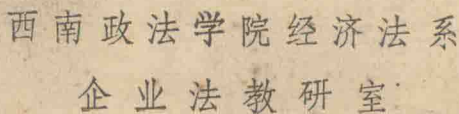 西南政法学院经济法系
企业法教研室